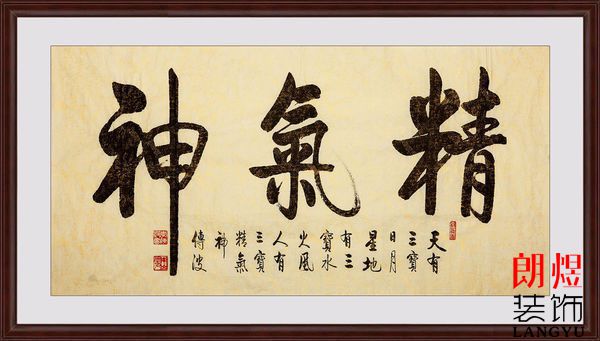 精氣神
天有
三寶
日月
星地
有三
寶水
火風
人有
三寶
精氣
神
傳波
朗煜
装饰
LANGYU